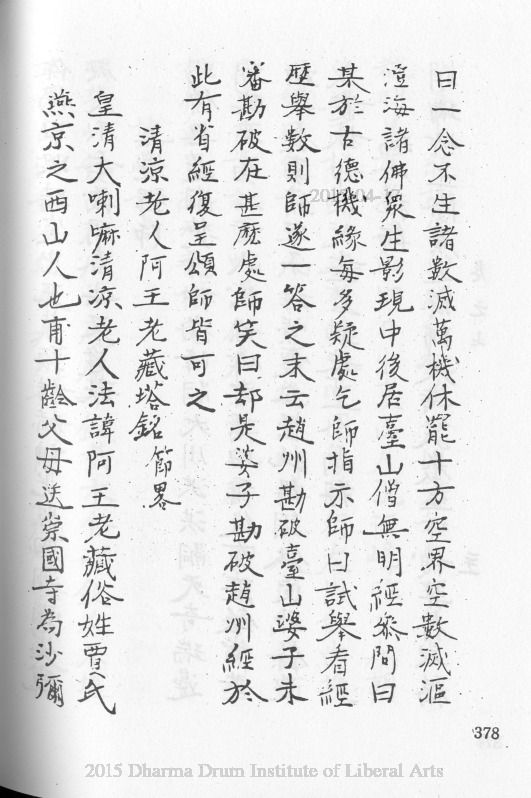 曰一念不生諸數滅萬機休罷十方空界空數滅漚
澄海諸佛眾生影現中後居臺山僧無明經叅問曰
某於古德機緣每多疑處乞師指示師曰試舉看經
歷舉數則師遂一答之末云趙州勘破臺山婆子未
審勘破在甚麽處師笑曰却是婆子勘破趙州經於
此有省經復呈頌師皆可之
清涼老人阿王老藏塔銘 節畧
皇清大喇嘛清凉老人法諱阿王老藏俗姓賈氏
燕京之西山人也甫十齡父母送崇國寺為沙彌
378
2015 Dharma Drum Institute of Liberal Arts